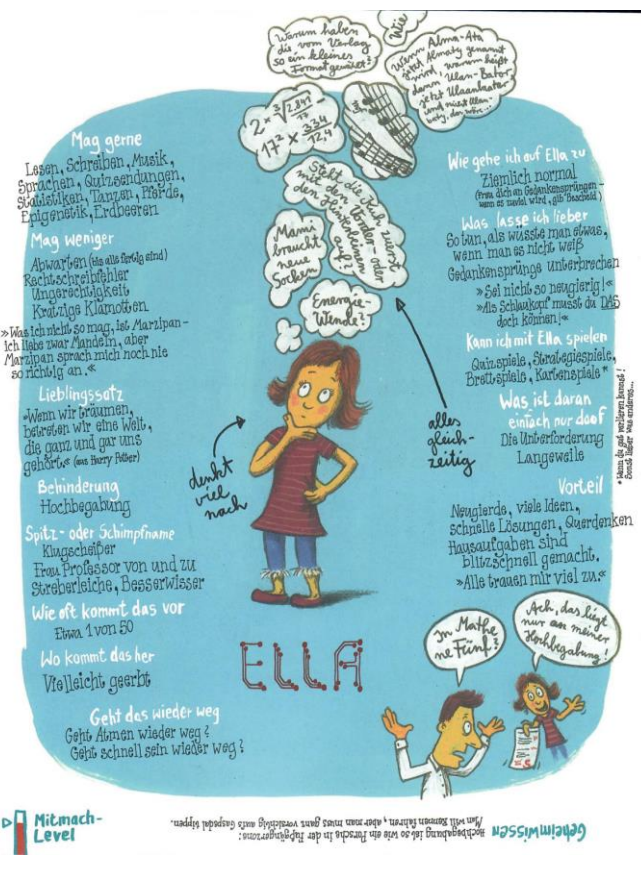 Warum haben
die vom Verlag
so ein kleines
Format gewählt?
Wie
Wenn Alma-Ata
jetzt Almaty genannt
wird, warum heißt
dann Ulan-Bator
jetzt Ulaanbaatar
und nicht Ulan-
baty, das wäre...
2 × ³√2.841 / 17 =
17² × 334 / 12,4
Steht die Kuh zuerst
mit den Vorder- oder
den Hinterbeinen
auf?
Mami
braucht
neue
Socken
Energie-
Wende?
Mag gerne
Lesen, Schreiben, Musik,
Sprachen, Quizsendungen,
Statistiken, Tanzen, Pferde,
Epigenetik, Erdbeeren
Mag weniger
Abwarten (bis alle fertig sind)
Rechtschreibfehler
Ungerechtigkeit
Kratzige Klamotten
»Was ich nicht so mag, ist Marzipan –
ich liebe zwar Mandeln, aber
Marzipan sprach mich noch nie
so richtig an.«
Lieblingssatz
»Wenn wir träumen,
betreten wir eine Welt,
die ganz und gar uns
gehört.« (aus Harry Potter)
Behinderung
Hochbegabung
Spitz- oder Schimpfname
Klugscheißer
Frau Professor von und zu
Streberleiche, Besserwisser
Wie oft kommt das vor
Etwa 1 von 50
Wo kommt das her
Vielleicht geerbt
Geht das wieder weg
Geht Atmen wieder weg?
Geht schnell sein wieder weg?
denkt
viel
nach
alles
gleich-
zeitig
ELLA
Wie gehe ich auf Ella zu
Ziemlich normal
(Freu dich an Gedankensprüngen –
wenn es zuviel wird, gib' Bescheid)
Was lasse ich lieber
So tun, als wüsste man etwas,
wenn man es nicht weiß
Gedankensprünge unterbrechen
»Sei nicht so neugierig!«
»Als Schlaukopf musst du DAS
doch können!«
Kann ich mit Ella spielen
Quizspiele, Strategiespiele,
Brettspiele, Kartenspiele*
* Wenn du gut verlieren kannst!
Sonst lieber was anderes...
Was ist daran
einfach nur doof
Die Unterforderung
Langeweile
Vorteil
Neugierde, viele Ideen,
schnelle Lösungen, Querdenken
Hausaufgaben sind
blitzschnell gemacht.
»Alle trauen mir viel zu.«
In Mathe
ne Fünf?
Ach, das liegt
nur an meiner
Hochbegabung!
5
Mitmach-
Level
Geheimwissen
Hochbegabung ist so wie ein Porsche in der Fußgängerzone:
Man will Rennen fahren, aber man muss ganz vorsichtig aufs Gaspedal tippen.